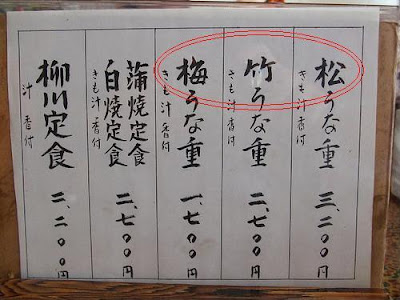 松うな重 三、二〇〇円
きも汁 香付
竹うな重 二、七〇〇円
きも汁 香付
梅うな重 一、七〇〇円
きも汁 香付
蒲焼定食
白焼定食 二、七〇〇円
きも汁 香付
柳川定食 二、二〇〇円
汁 香付